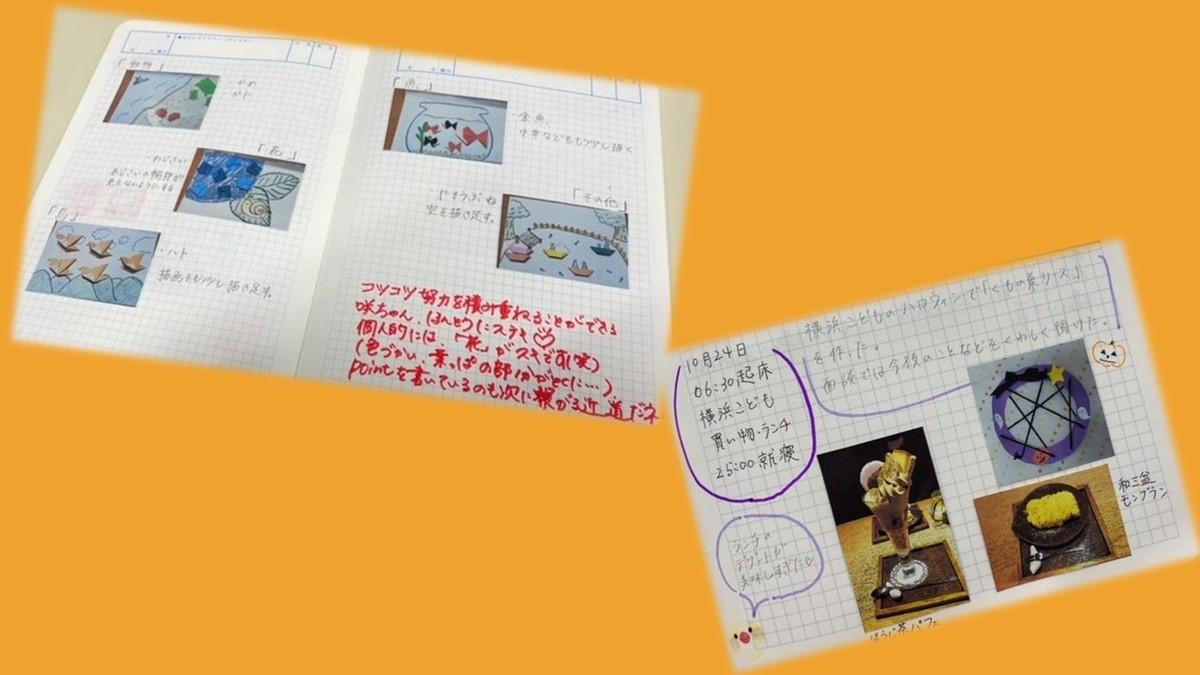 「動物」
・かめ
・かに
「花」
・あじさい
あじさいの輪郭が
見えないようにする
「鳥」
・ハト
描画をもう少し描き足す。
「魚」
・金魚、
水草などをもう少し描く
「その他」
・じゃうぶね
空を描き足す。
コツコツ努力を積み重ねることができる
咲ちゃん、ほんとうにステキ♡
個人的には「花」がスキです(笑)
(色づかい、葉っぱの部分がとくに…)
pointを書いているのも次に繋がる近道だネ
10月24日
06:30起床
横浜こども
買い物・ランチ
25:00就寝
横浜こどものハロウィンで「くもの巣リース」
を作った。
面談では今後のことなどをくわしく聞けた。
ランチの
デザートが
美味しすぎた♡
ほうじ茶パフェ
和三盆
モンブラン